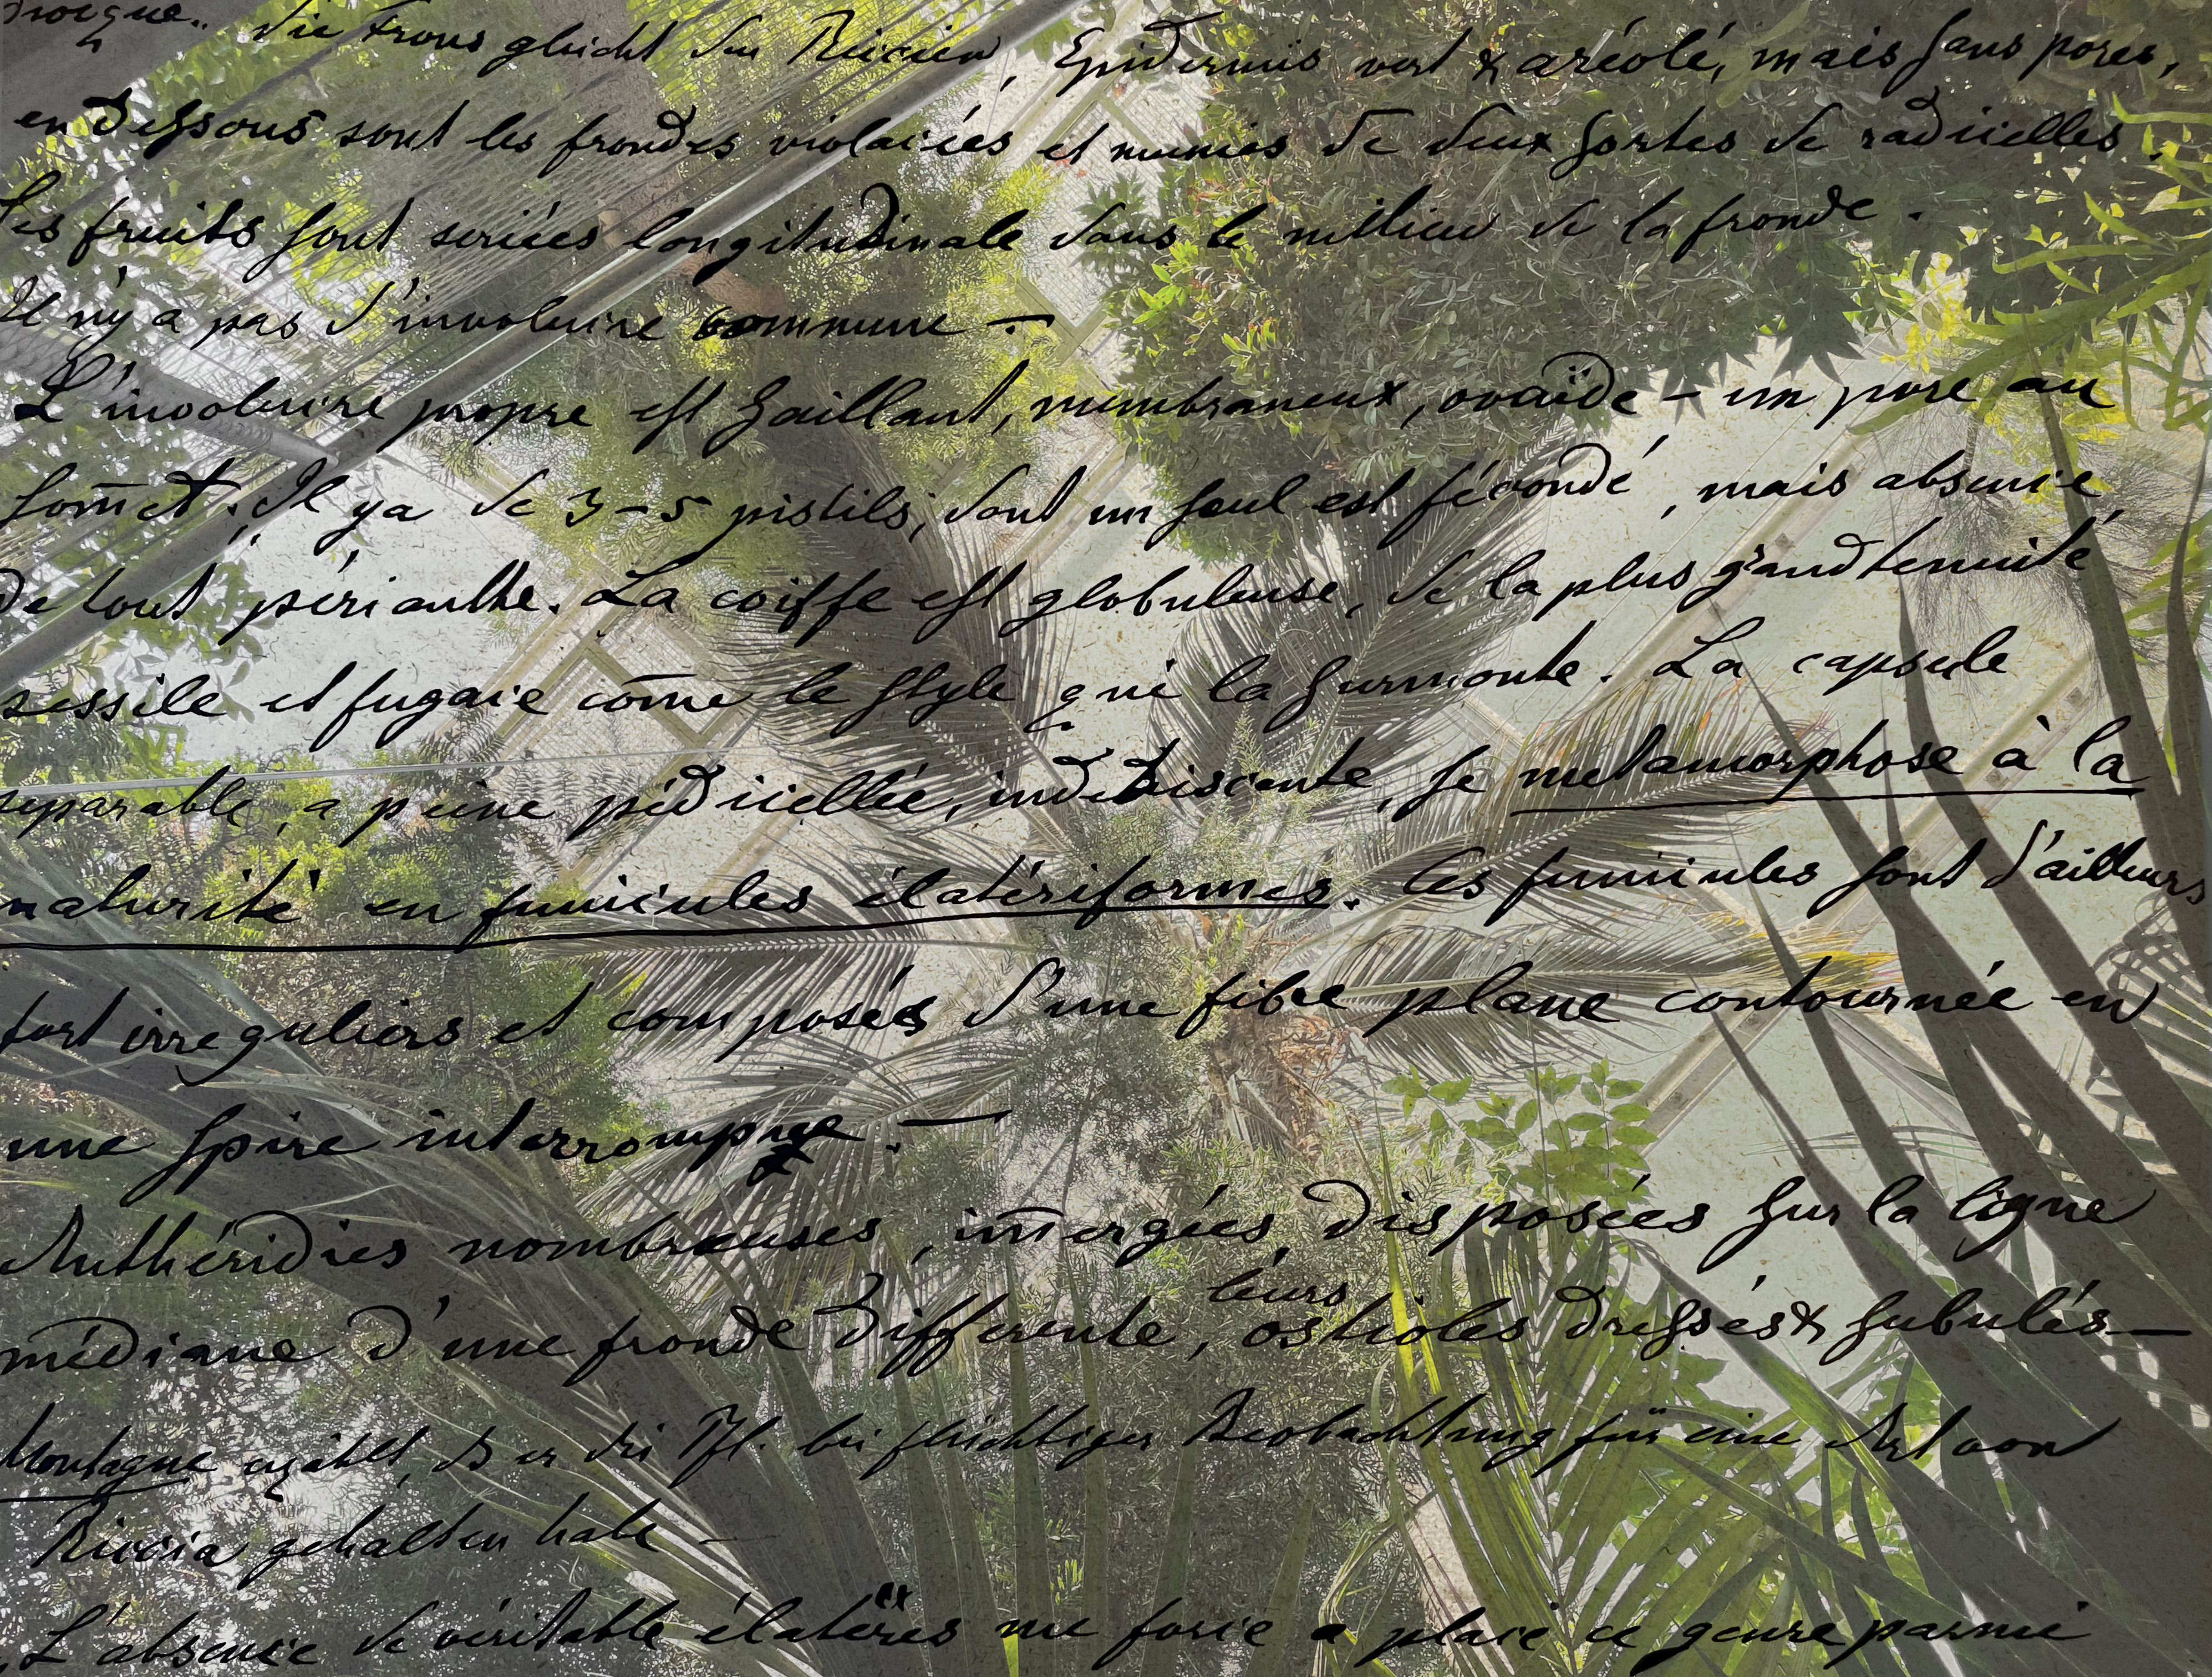 Die Frons gleicht den Riccien, Epidermis vert & aréolé, mais sans pores,
en dessous sont les frondes violacées et munies de deux sortes de radicelles.
Les fruits sont seriées longitudinale dans le milieu de la fronde.
Il n'y a pas d'involucre commune —
L'involucre propre est saillant, membraneux, ovoïde – un pore au
som̄et. Il y a de 3–5 pistils, dont un seul est fécondé, mais absence
de tout périanthe. La coiffe est globuleuse, de la plus grand tenuité
sessile et fugace com̄e le style qui la surmonte. La capsule
separable, a peine pédicellée, indehiscente, se metamorphose à la
maturité en funicules élatériformes. Ces funicules sont d'ailleurs
fort irreguliers et composés d'une fibre plane contournée en
une spire interrompue. —
Anthéridies nombreuses, im̄ergées, disposées sur la ligne
médiane d'une fronde differente, leurs ostioles dressés & subulés —
Montagne erzählt, dß er die Pfl. bei flüchtiger Beobachtung für eine Art von
Riccia gehalten habe —
L'absence de véritable élatères me force a placé ce genre parmi